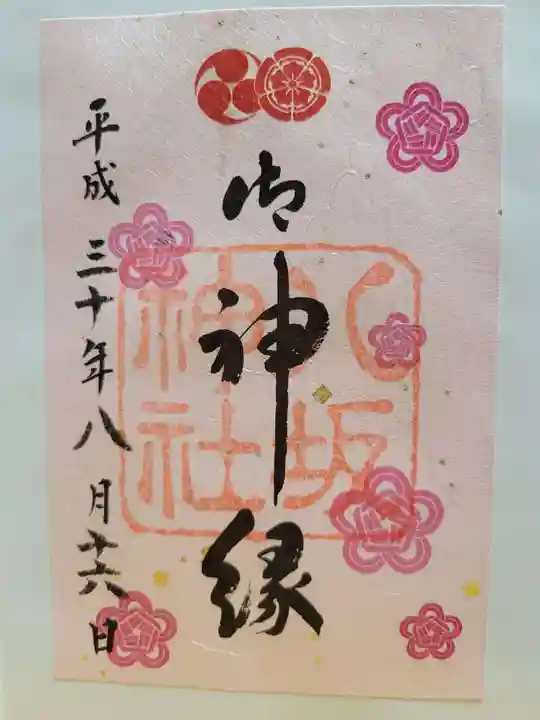 御神縁
八坂
神社
平成三十年八月十六日